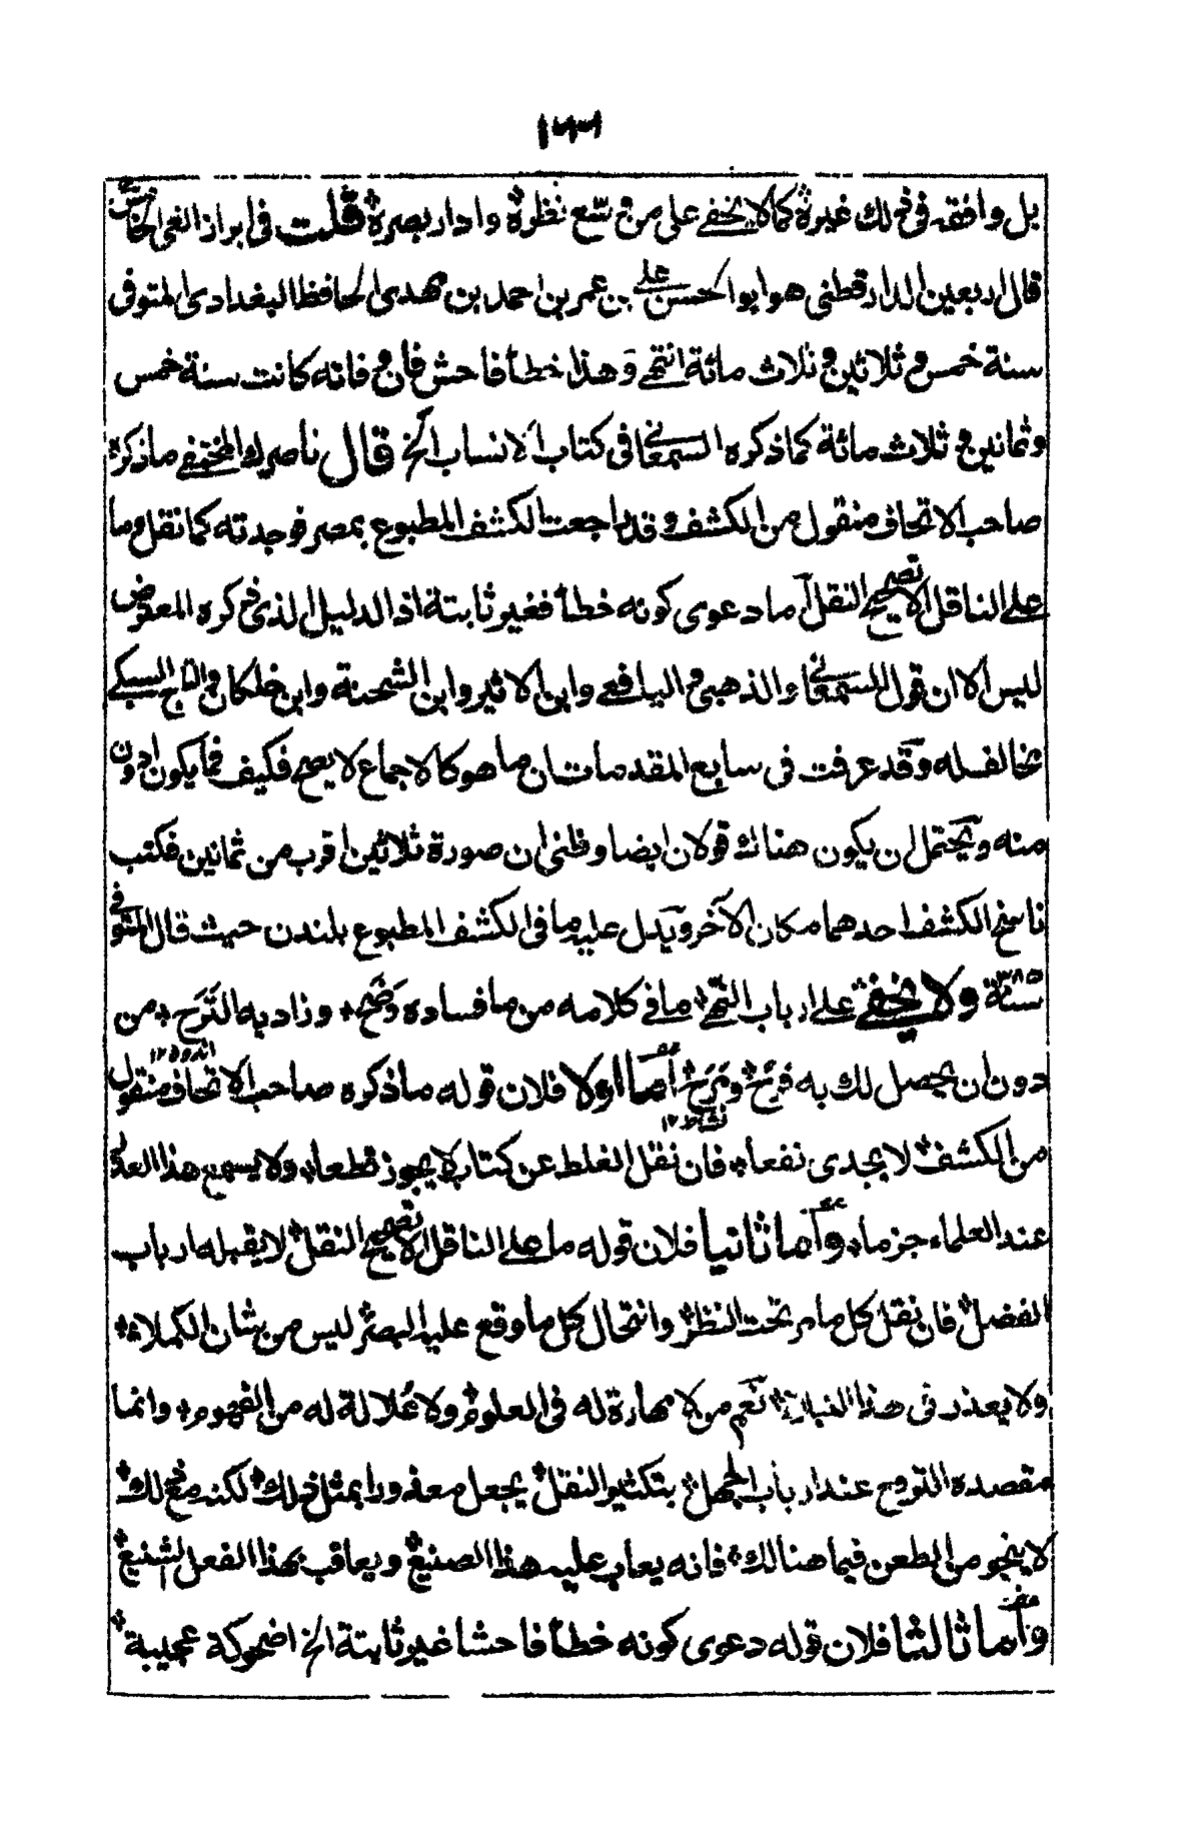 ١٣٣
بل وافقه في ذلك غيره كما لا يخفى على من وسّع نظره وادار بصره قلت في ابراز الغي الخامس
قال اربعين الدارقطني هو ابو الحسن علي بن عمر بن احمد بن مهدي الحافظ البغدادي المتوفى
سنة خمس وثلاثين وثلاث مائة انتهى وهذا خطأ فاحش فان وفاته كانت سنة خمس
وثمانين وثلاث مائة كما ذكره السمعاني في كتاب الانساب الخ قال ناصرك المختفي ما ذكره
صاحب الاتحاف منقول من الكشف وقد راجعت الكشف المطبوع بمصر فوجدته كما نقل وما
على الناقل الا تصحيح النقل اما دعوى كونه خطأ فغير ثابتة اذ الدليل الذي ذكره المعترض
ليس الا ان قول السمعاني والذهبي واليافعي وابن الاثير وابن الشحنة وابن خلكان والتاج السبكي
مخالف له وقد عرفت في سابع المقدمات ان ما هو كالاجماع لا يصح فكيف فما يكون ادون
منه ويحتمل ان يكون هناك قولان ايضا وظني ان صورة ثلاثين اقرب من ثمانين فكتب
ناسخ الكشف احدهما مكان الآخر ويدل عليه ما في الكشف المطبوع بلندن حيث قال المتوفى
سنة ٣٨٥ ولا يخفى على ارباب النهى ما في كلامه من ما فساده وضح وزاد به الترح من
دون ان يحصل لك به فرح ومرح اما اولا فلان قوله ما ذكره صاحب الاتحاف منقول
من الكشف لا يجدى نفعا فان نقل الغلط عن كتاب لا يجوز قطعا ولا يسمع هذا العذر
عند العلماء جزما واما ثانيا فلان قوله ما على الناقل الا تصحيح النقل لا يقبله ارباب
الفضل فان نقل كل ما مر تحت النظر وانتحال كل ما وقع عليه البصر ليس من شان الكملاء
ولا يعذر في هذا نعم من لا مهارة له في العلوم ولا علالة له من الفهوم وانما
مقصده التروح عند ارباب الجهل بتكثير النقل يجعل معذورا بمثل ذلك لكنه مع ذلك
لا ينجو من الطعن فيما هنالك فانه يعاب عليه هذا الصنيع ويعاقب بهذا الفعل الشنيع
واما ثالثا فلان قوله دعوى كونه خطأ فاحشا غير ثابتة الخ اضحوكة عجيبة